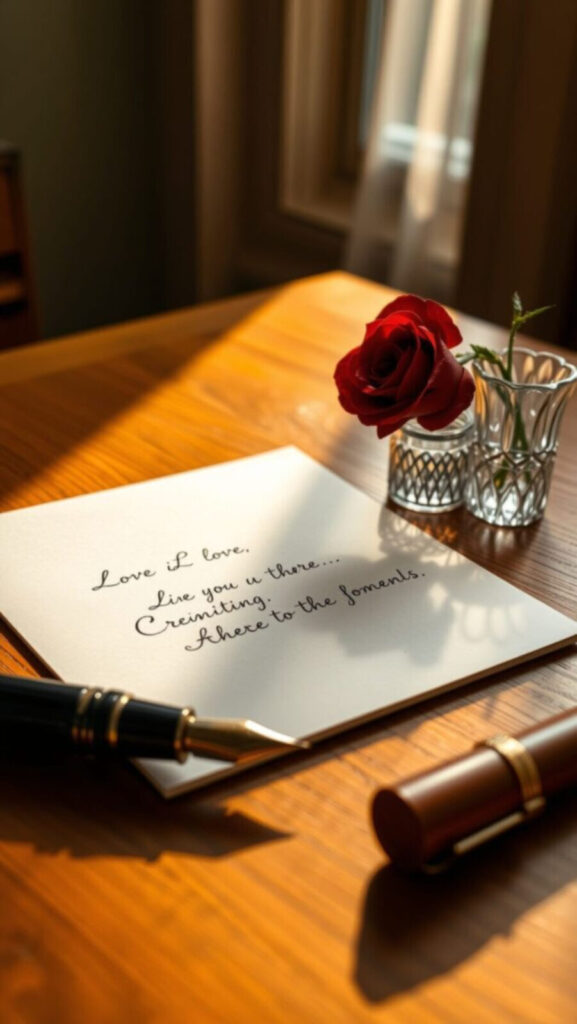 Love iL love,
Lise you u there...
Creiniting.
Ahere to the foments.